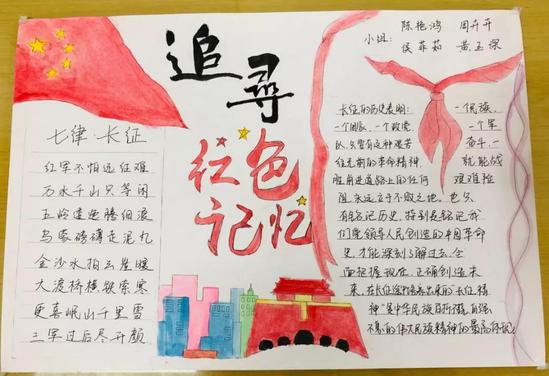 追尋
红色
记忆
小组：陈艳鸿 周卉卉
侯菲茹 黄玉深
七律 长征
红军不怕远征难
万水千山只等闲
五岭逶迤腾细浪
乌蒙磅礴走泥丸
金沙水拍云崖暖
大渡桥横铁索寒
更喜岷山千里雪
三军过后尽开颜
长征的历史表明：一个民族，
一个国家，一个政党，一个军
队，只要有这种艰苦奋斗，一
往无前的革命精神，就能战
胜前进道路上的任何艰难险
阻，永远立于不败之地。也只
有铭记历史，特别是铭记我
们党领导人民创造的中国革命
史，才能深刻了解过去、全
面把握现在、正确创造未
来，在长征途中培养出来的"长征精
神"是中华民族自强
不息的伟大民族精神的最高体现